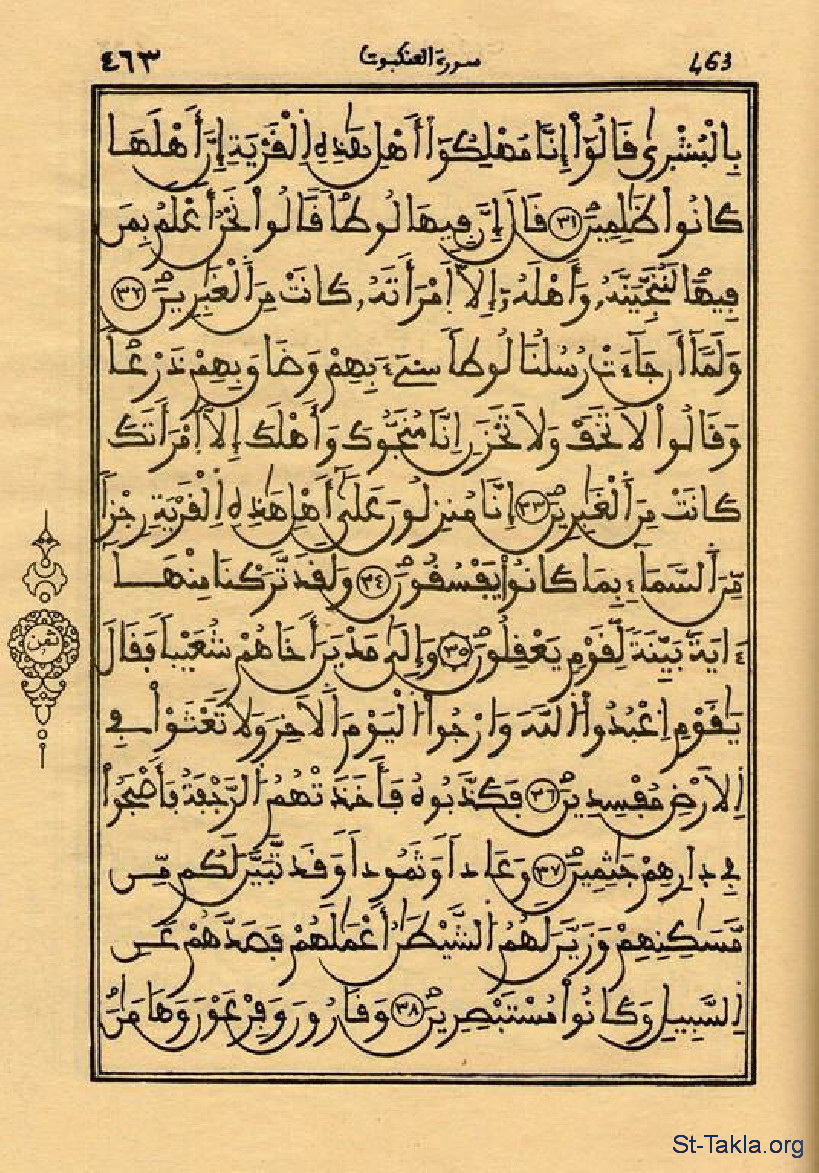 ٤٦٣ سورة العنكبوت 463
بِالْبُشْر۪يٰ قَالُوٓاْ إِنَّا مُهْلِكُوٓاْ أَهْلِ هَٰذِهِ اِ۬لْقَرْيَةِ إِنَّ أَهْلَهَا
كَانُواْ ظَٰلِمِينَ ٣١ قَالَ إِنَّ فِيهَا لُوطاٗ قَالُواْ نَحْنُ أَعْلَمُ بِمَن
فِيهَا لَنُنَجِّيَنَّهُۥ وَأَهْلَهُۥٓ إِلَّا اَ۪مْرَأَتَهُۥ كَانَتْ مِنَ اَ۬لْغَٰبِرِينَ ٣٢
وَلَمَّآ أَن جَآءَتْ رُسُلُنَا لُوطاٗ سِےٓءَ بِهِمْ وَضَاقَ بِهِمْ ذَرْعاٗ
وَقَالُواْ لَا تَخَفْ وَلَا تَحْزَنِ اِنَّا مُنَجُّوكَ وَأَهْلَكَ إِلَّا اَ۪مْرَأَتَكَ
كَانَتْ مِنَ اَ۬لْغَٰبِرِينَ ٣٣ إِنَّا مُنزِلُونَ عَلَيٰٓ أَهْلِ هَٰذِهِ اِ۬لْقَرْيَةِ رِجْزاٗ
مِّنَ اَ۬لسَّمَآءِ بِمَا كَانُواْ يَفْسُقُونَ ٣٤ وَلَقَد تَّرَكْنَا مِنْهَا
ءَايَةَۢ بَيِّنَةٗ لِّقَوْمٖ يَعْقِلُونَ ٣٥ وَإِلَيٰ مَدْيَنَ أَخَاهُمْ شُعَيْباٗ فَقَالَ
يَٰقَوْمِ اِ۟عْبُدُواْ اُ۬للَّهَ وَارْجُواْ اُ۬لْيَوْمَ اَ۬لَاخِرَ وَلَا تَعْثَوْاْ فِے
اِ۬لَارْضِ مُفْسِدِينَ ٣٦ فَكَذَّبُوهُ فَأَخَذَتْهُمُ اُ۬لرَّجْفَةُ فَأَصْبَحُواْ
فِے دِارِهِمْ جَٰثِمِينَ ٣٧ وَعَاداٗ وَثَمُوداٗ وَقَد تَّبَيَّنَ لَكُم مِّن
مَّسَٰكِنِهِمْ وَزَيَّنَ لَهُمُ اُ۬لشَّيْطَٰنُ أَعْمَٰلَهُمْ فَصَدَّهُمْ عَنِ
اِ۬لسَّبِيلِ وَكَانُواْ مُسْتَبْصِرِينَ ٣٨ وَقَٰرُونَ وَفِرْعَوْنَ وَهَٰمَٰنَ
ثمن
St-Takla.org